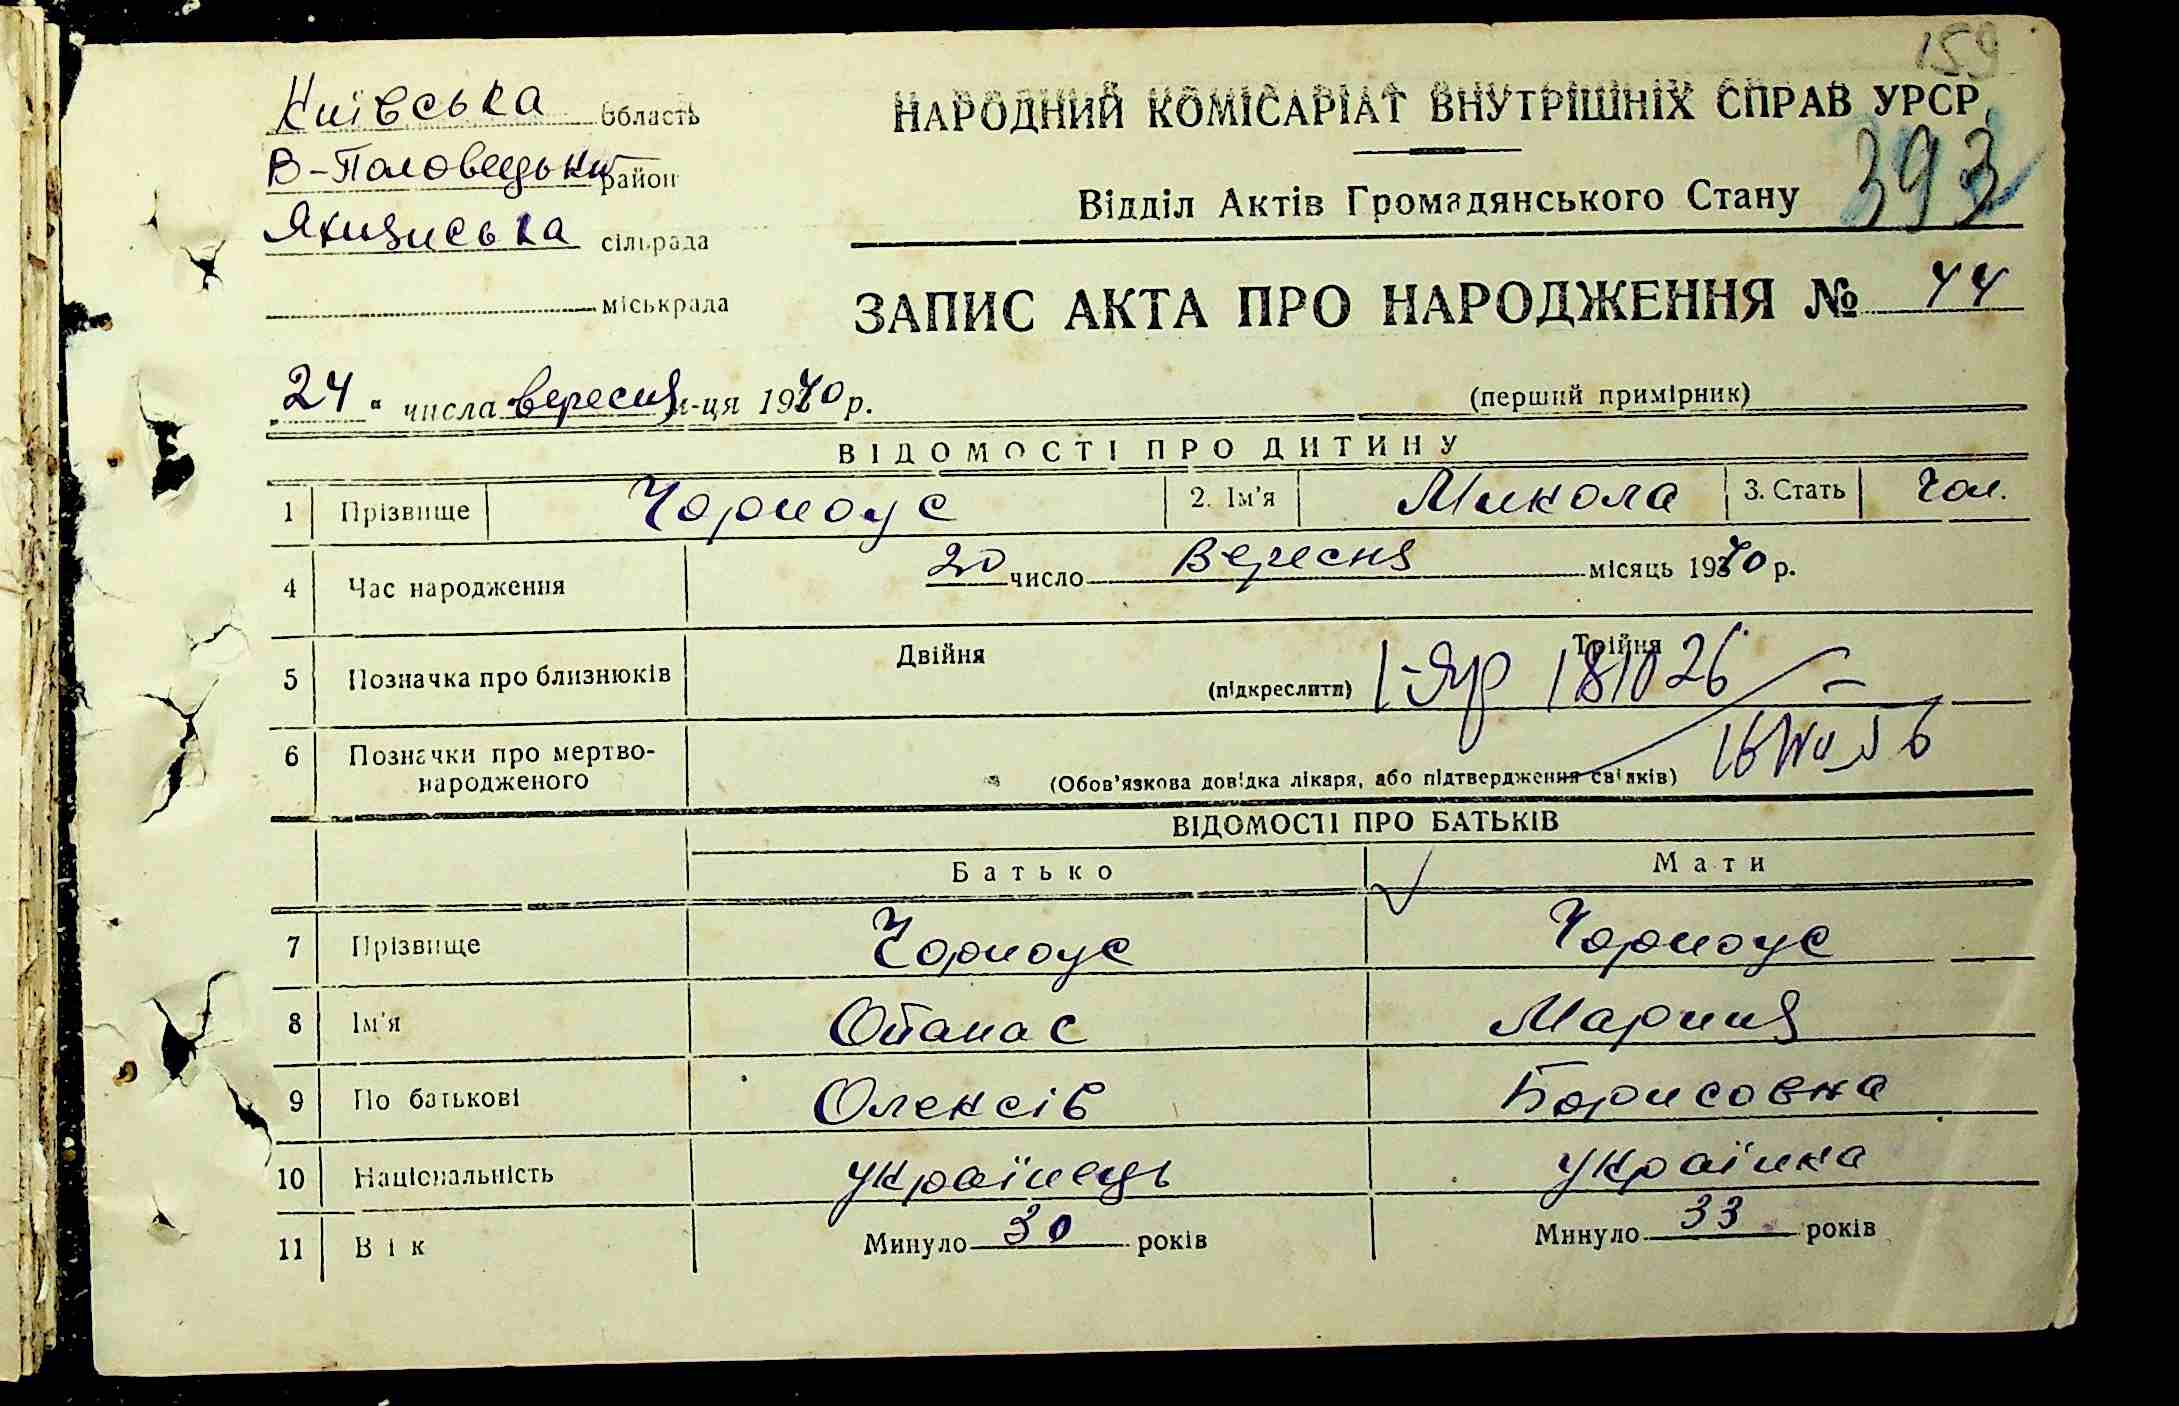 159
Київська область
НАРОДНИЙ КОМІСАРІАТ ВНУТРІШНІХ СПРАВ УРСР
В-Половецький район
393
Відділ Актів Громадянського Стану
Яхнянська сільрада
міськрада
ЗАПИС АКТА ПРО НАРОДЖЕННЯ № 44
24 " числа вересня м-ця 1940 р.
(перший примірник)
ВІДОМОСТІ ПРО ДИТИНУ
1 Прізвище Чорноус 2. Ім'я Микола 3. Стать Чол.
4 Час народження 20 число Вересня місяць 1940 р.
5 Позначка про близнюків Двійня (підкреслити) Трійня
І-Яр 181026
6 Позначки про мертвонародженого (Обов'язкова довідка лікаря, або підтвердження свідків)
ВІДОМОСТІ ПРО БАТЬКІВ
Батько Мати
7 Прізвище Чорноус Чорноус
8 Ім'я Опанас Мария
9 По батькові Олексів Борисовна
10 Національність українець українка
11 Вік Минуло 30 років Минуло 33 років